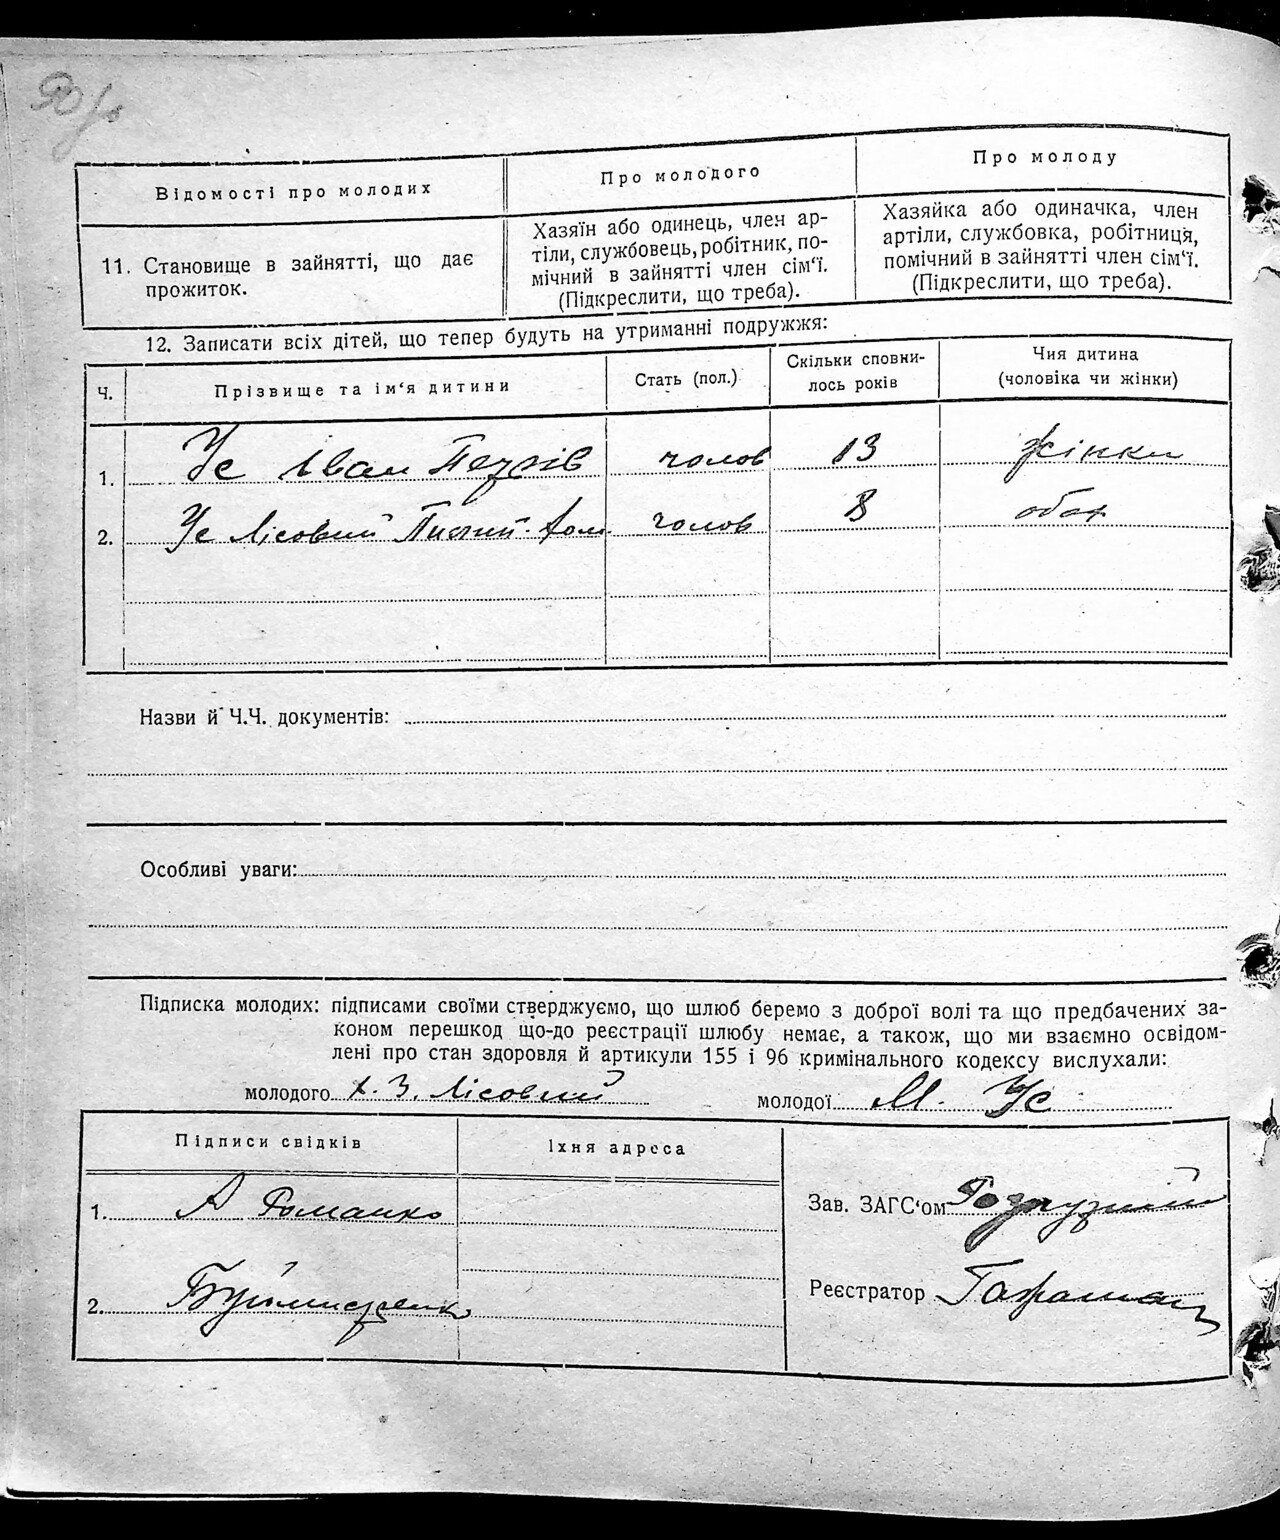 Відомості про молодих
Про молодого
Про молоду
11. Становище в зайнятті, що дає
прожиток.
Хазяїн або одинець, член ар-
тіли, службовець, робітник, по-
мічний в зайнятті член сім'ї.
(Підкреслити, що треба).
Хазяйка або одиначка, член
артіли, службовка, робітниця,
помічний в зайнятті член сім'ї.
(Підкреслити, що треба).
12. Записати всіх дітей, що тепер будуть на утриманні подружжя:
Ч.
Прізвище та ім'я дитини
Стать (пол.)
Скільки сповни-
лось років
Чия дитина
(чоловіка чи жінки)
1. Ус Іван чолов 13 жінки
2. Ус Лісовий чолов 8 обох
Назви й Ч.Ч. документів:
Особливі уваги:
Підписка молодих: підписами своїми стверджуємо, що шлюб беремо з доброї волі та що предбачених за-
коном перешкод що-до реєстрації шлюбу немає, а також, що ми взаємно освідом-
лені про стан здоровля й артикули 155 і 96 кримінального кодексу вислухали:
молодого Х. З. Лісовий молодої М. Ус
Підписи свідків
Їхня адреса
1. А Романко
2.
Зав. ЗАГС'ом
Реєстратор